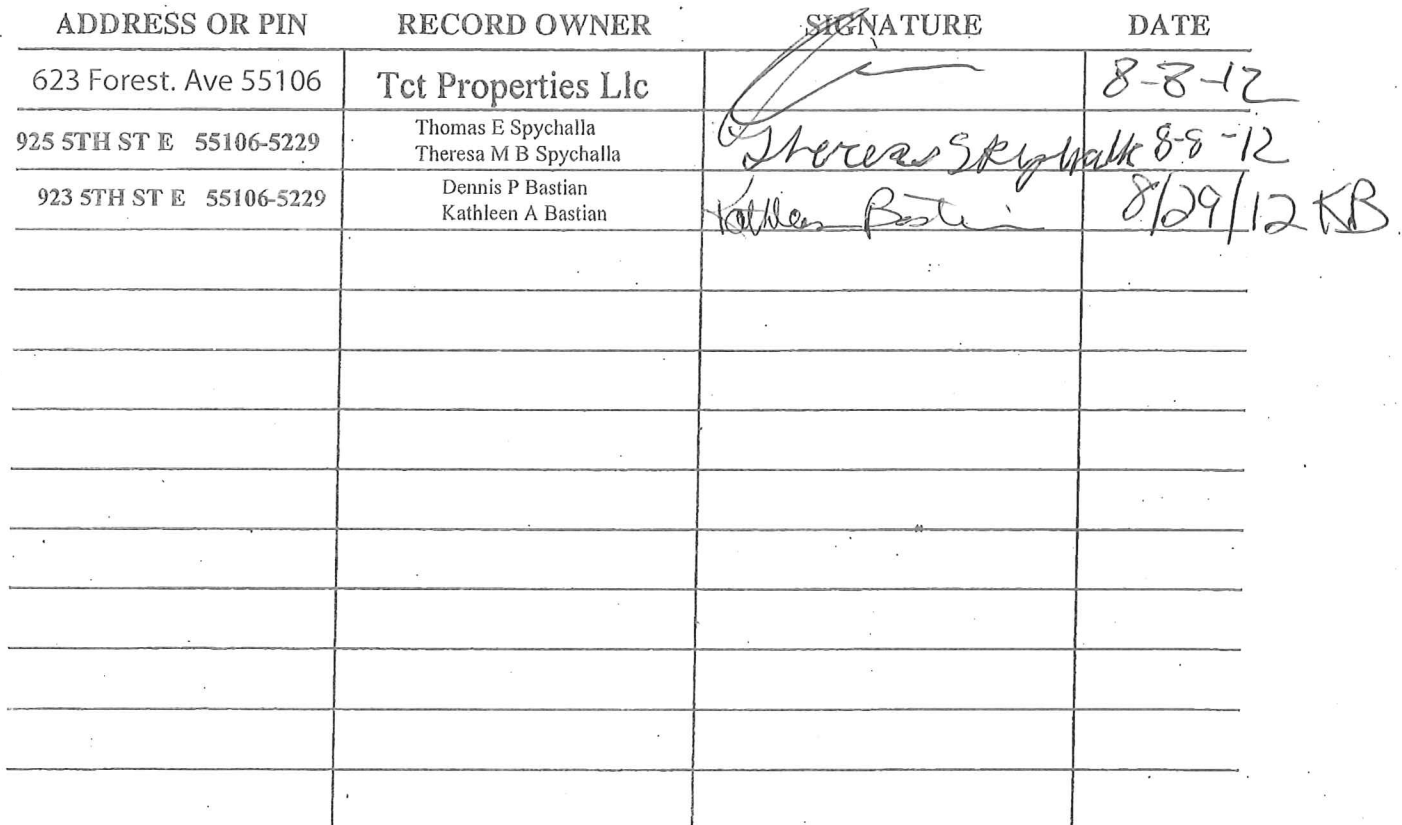 ADDRESS OR PIN RECORD OWNER SIGNATURE DATE
623 Forest. Ave 55106 Tct Properties Llc 8-8-12
925 5TH ST E 55106-5229 Thomas E Spychalla
Theresa M B Spychalla Theresa Spychalla 8-8-12
923 5TH ST E 55106-5229 Dennis P Bastian
Kathleen A Bastian Kathleen Bastian 8/29/12 KB